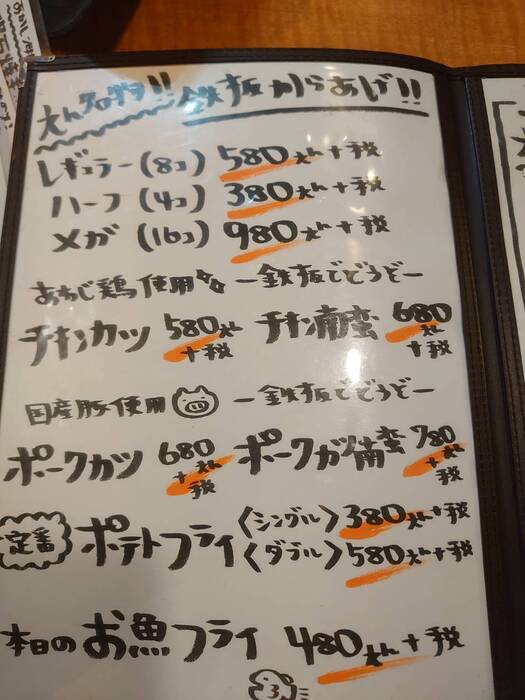 鉄板からあげ!!
レギュラー(8コ) 580えん+税
ハーフ(4コ) 380えん+税
メガ(16コ) 980えん+税
あちじ鶏使用 ー鉄板でどうぞー
チキンカツ 580えん+税 チキン南蛮 680えん+税
国産豚使用 ー鉄板でどうぞー
ポークカツ 680えん+税 ポークカツ南蛮 780えん+税
定番 ポテトフライ 〈シングル〉 380えん+税
〈ダブル〉 580えん+税
本日のお魚フライ 480えん+税
3